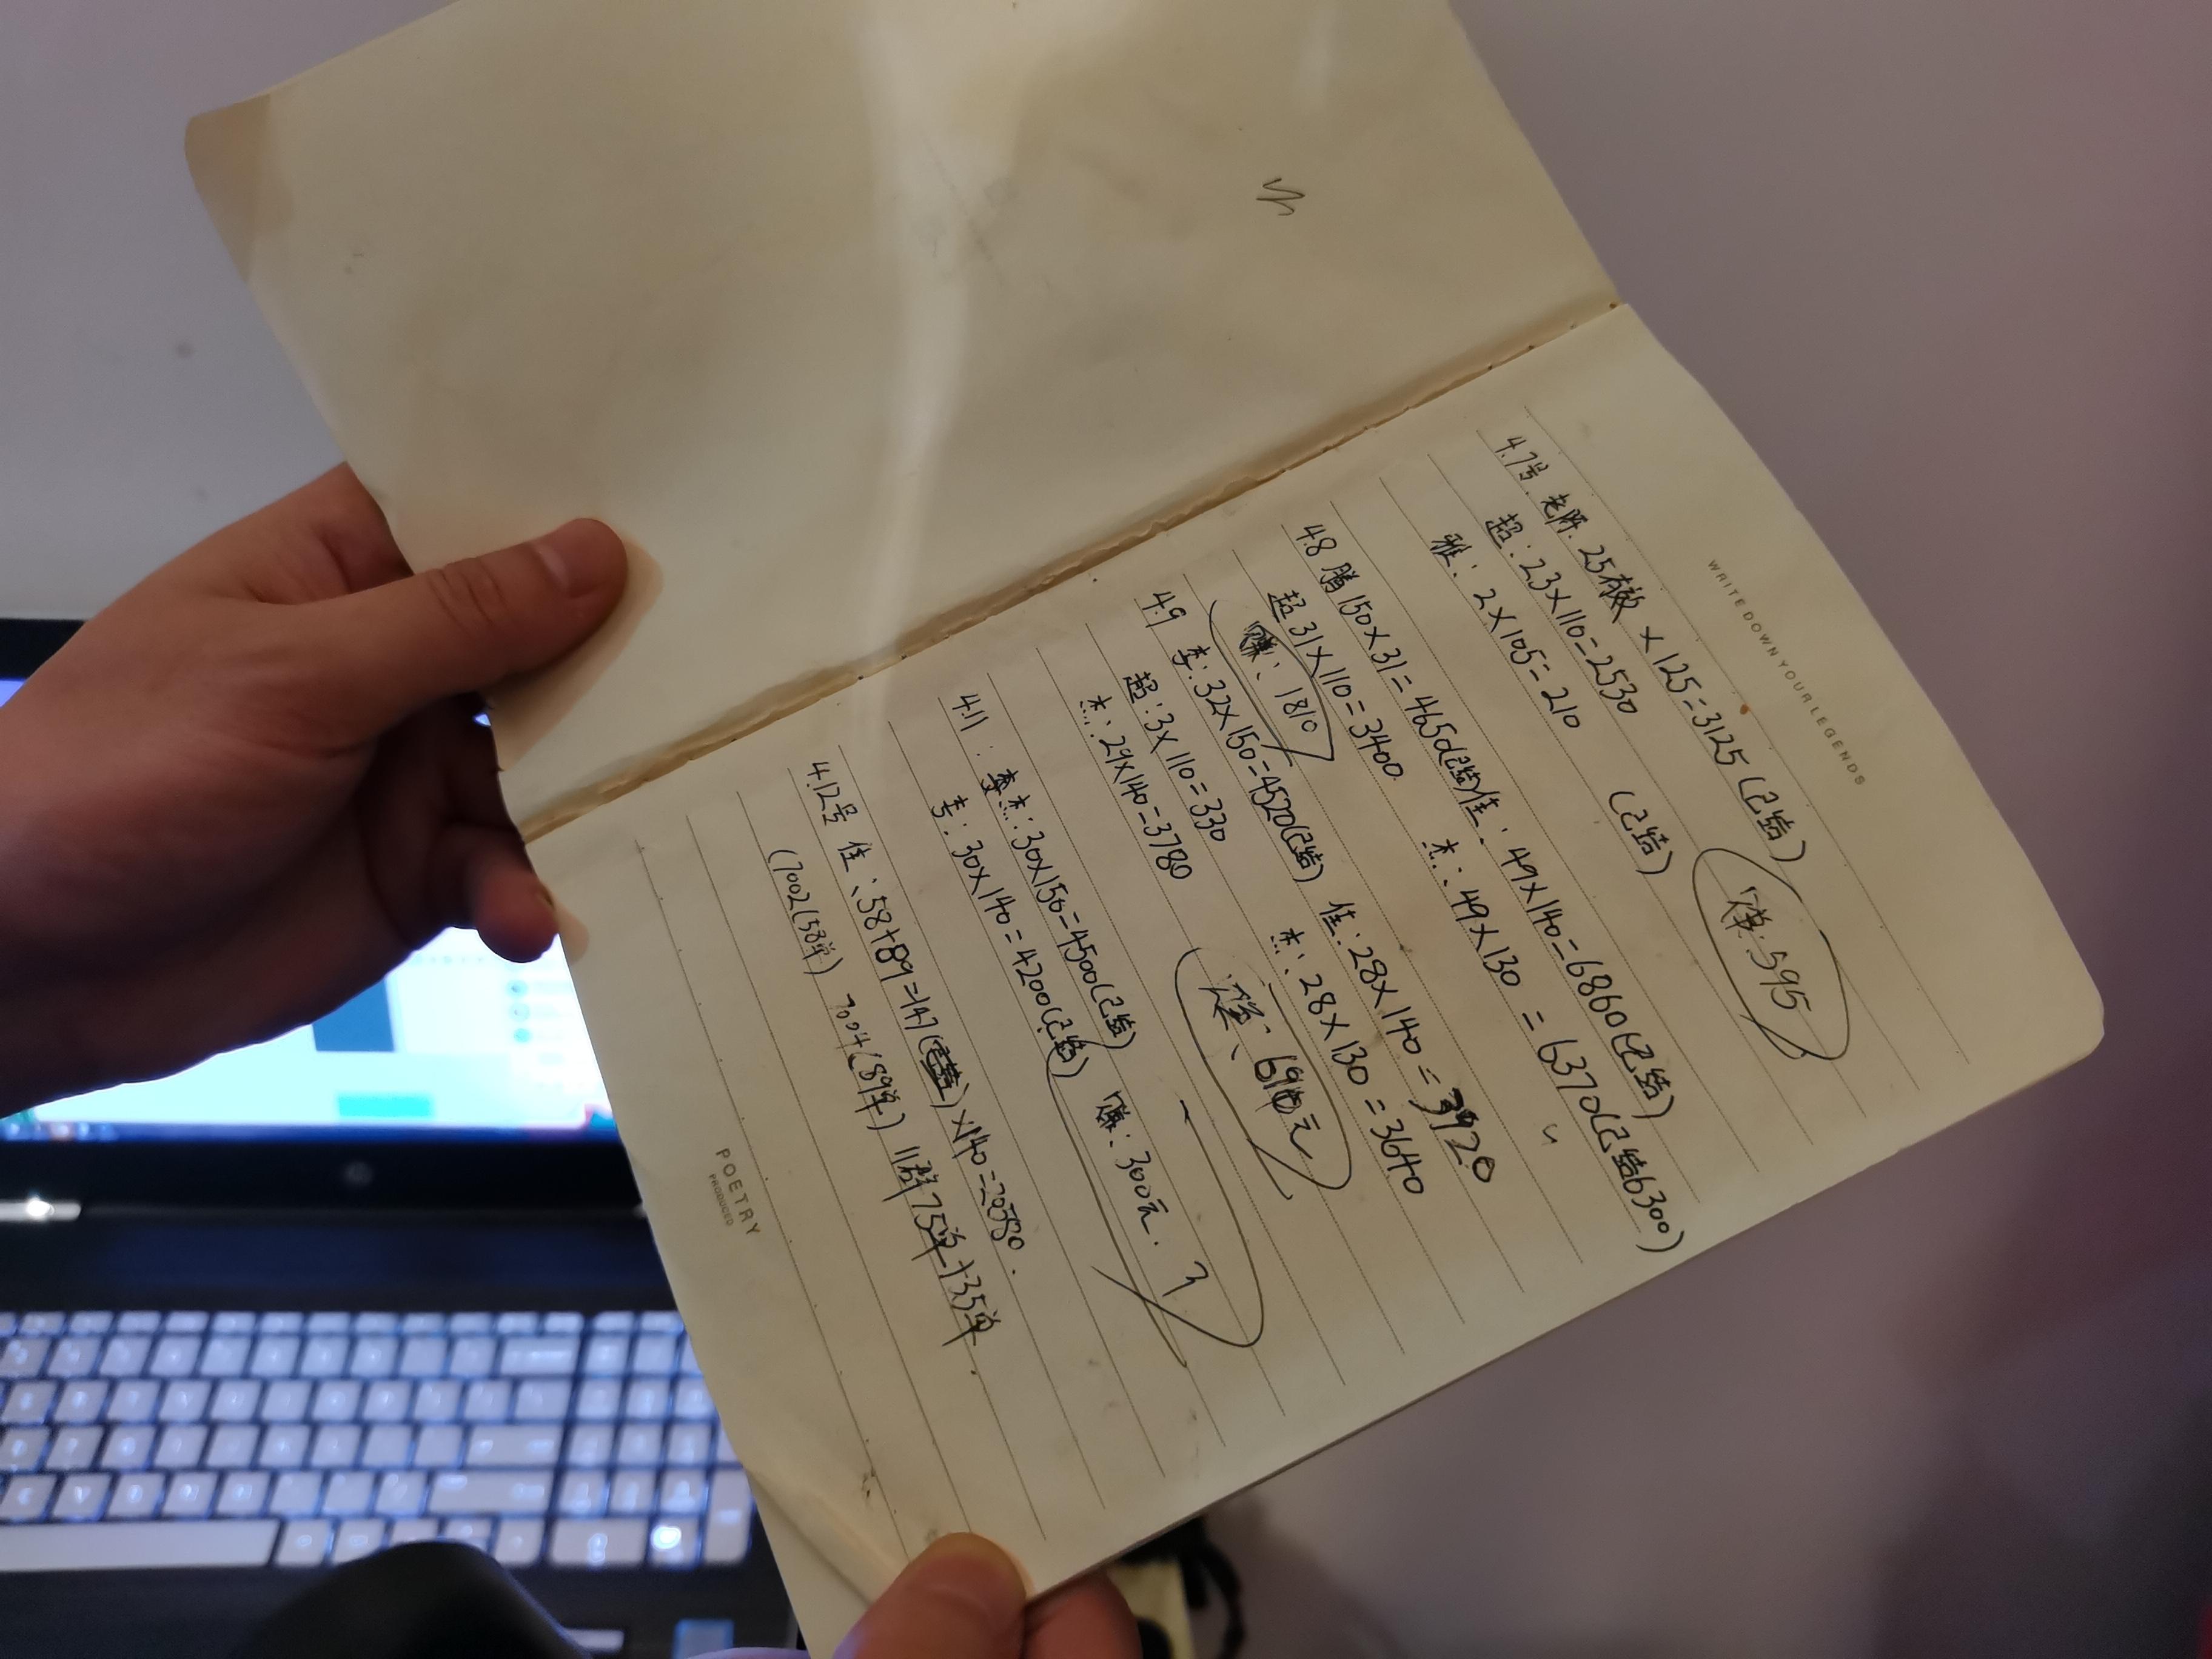 WRITE DOWN YOUR LEGENDS
4.7号 老师: 25有效 ×125=3125(已结)
超: 23×110=2530
雅: 2×105=210 (已结) 赚: 595
4.8 腾 150×31=4650(已结) 佳: 49×140=6860(已结)
超 31×110=3400 杰: 49×130=6370(已结6300)
赚: 1810
4.9 李: 32×150=4520(已结) 佳: 28×140=3920
超: 3×110=330 杰: 28×130=3640
杰: 29×140=3780
元
4.11: 杰: 30×150=4500(已结) 赚: 300元.
李: 30×140=4200(已结)
4.12号 佳: 58+89=147 ×140=20580.
(7002(58单) 7004(89单) 11群75单+35单.
POETRY
PRODUCED